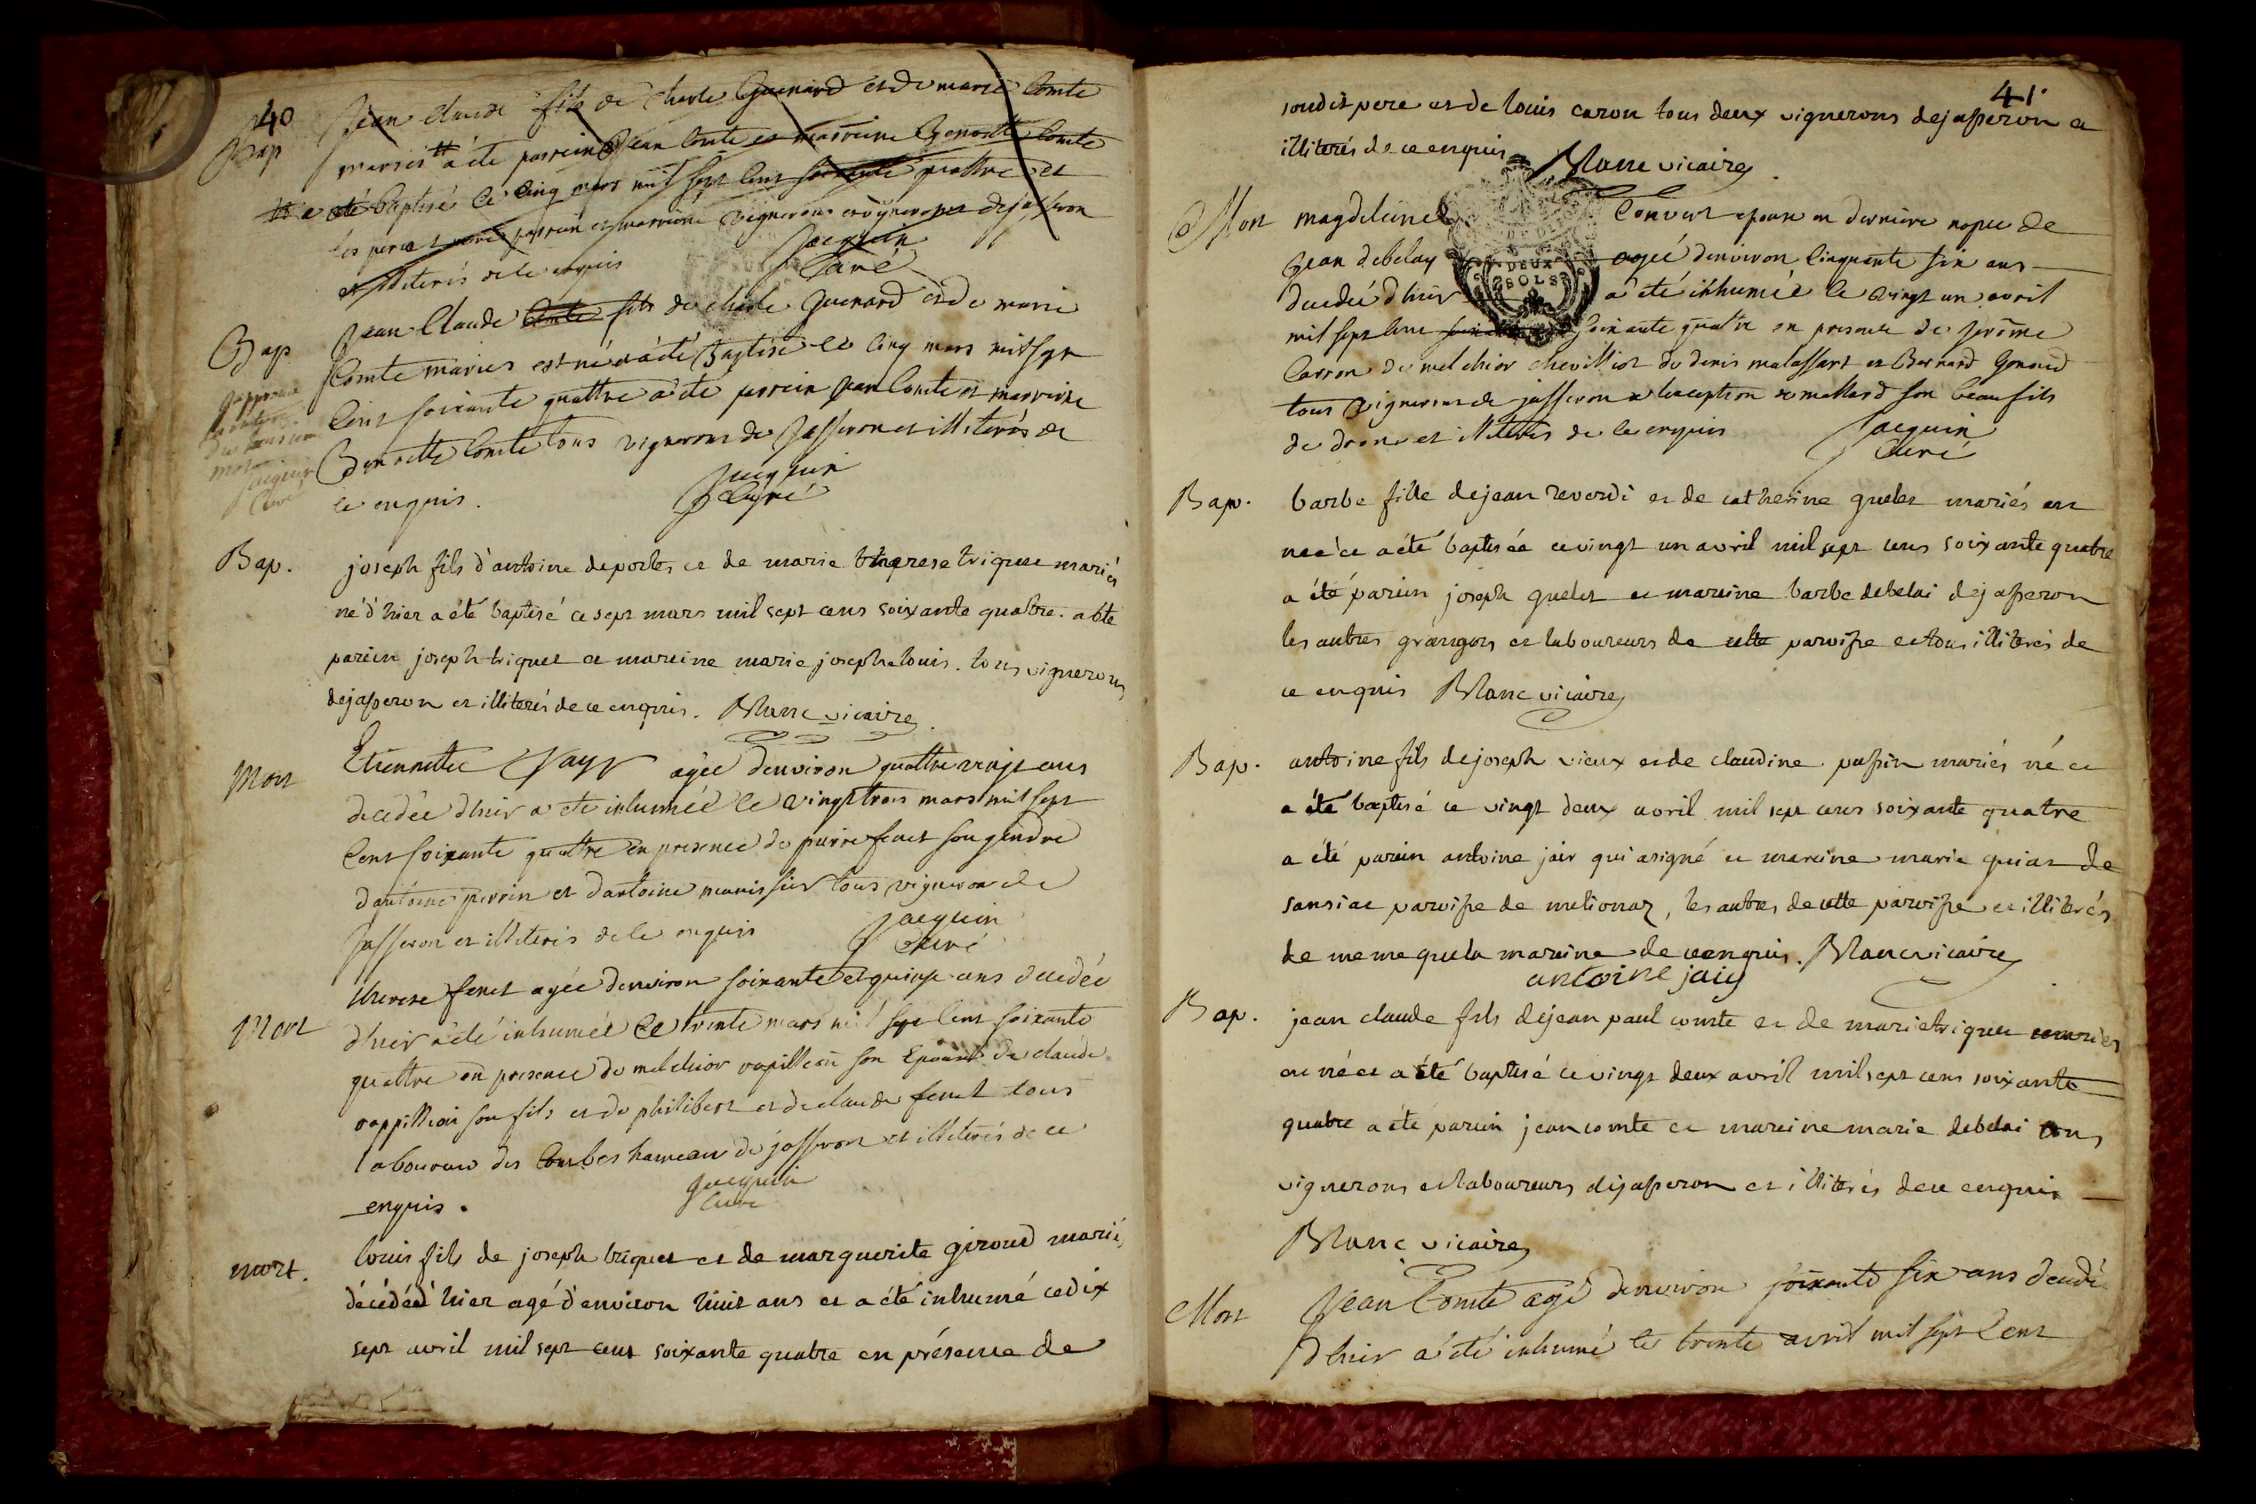 40
Bap
Jean claude fils de charle Guenard et de marie Comte
mariés a été parrein Jean Comte et marreine Benoitte Comte
a été baptisé le cinq mars mil sept cent soixante quattre et
les pere et mere parrein et marreine vignerons et vigneronnes de jasseron
et illiterés de ce enquis
Jacquin
Curé
Bap
Jean Claude Comte fils de charle Guenard et de marie
Comte mariés est né et a été Baptisé le cinq mars mil sept
Cent soixante quattre a été parrein Jean Comte et marreine
Benoitte Comte tous vignerons de Jasseron et illiterés de
ce enquis.
Jacquin
Curé
Bap.
joseph fils d'antoine deportes et de marie therese triquet mariés
né d'hier a été baptisé ce sept mars mil sept cens soixante quatre. a été
parein joseph triquet et mareine marie josephe louis. tous vignerons
dejasseron et illiterés de ce enquis. Blanc vicaire
Mort
Etiennette agée denviron quattre vingt ans
decedée dhier a été inhumée le vingt trois mars mil sept
Cent soixante quattre en presence de pierre feret son gendre
dantoine perrin et dantoine manissier tous vigneron de
Jasseron et illiterés de ce enquis
Jacquin
Curé
Mort
therese feret agée denviron soixante et quinze ans decedée
dhier a été inhumée le trente mars mil sept Cent soixante
quattre en presence de melchior rapillion son Epoux de claude
rappillion son fils et de philibert et de claude feret tous
laboureurs des Combes hameau de jasseron et illiterés de ce
enquis.
Jacquin
Curé
mort.
louis fils de joseph triquet et de marguerite giroud mariés
décédé d'hier agé d'environ huit ans et a été inhumé ce dix
sept avril mil sept cens soixante quatre en présence de
41.
soudit pere et de louis caron tous deux vignerons dejasseron et
illiterés de ce enquis Blanc vicaire
DEUX
SOLS
Mort
magdeleine Convert epouse en derniere nopce de
Jean debelay agée denviron Cinquante six ans
decedée dhier a été inhumée le vingt un avril
mil sept cent soixante quatre en presence de Jerôme
Carron de melchior chevilliot de denis malassart et Bernard Gonoud
tous vignerons de jasseron a lexception de mallard son beau fils
de drom et illiterés de ce enquis
Jacquin
Curé
Bap.
barbe fille dejean reverdi et de catherine quelet mariés est
neé et a été baptiséé ce vingt un avril mil sept cens soixante quatre
a été parein joseph quelet et mareine barbe debelai dejasseron
les autres grangers et laboureurs de cette paroisse et tous illiterés de
ce enquis Blanc vicaire
Bap.
antoine fils dejoseph vieux et de claudine passin mariés né et
a été baptisé ce vingt deux avril mil sept cens soixante quatre
a été parein antoine jair qui a signé et mareine marie guiar de
sansiat paroisse de melionaz, les autres de cette paroisse et illiterés
de meme que la mareine de ce enquis. Blanc vicaire
antoine jaiy
Bap.
jean claude fils dejean paul comte et de marie triquet mariés
est né et a été baptisé ce vingt deux avril mil sept cens soixante
quatre a été parein jean comte et mareine marie debelai tous
vignerons et laboureurs dejasseron et illiterés de ce enquis
Blanc vicaire
Mort
Jean Comte agé denviron soixante six ans decedé
dhier a été inhumé le trente avril mil sept Cent